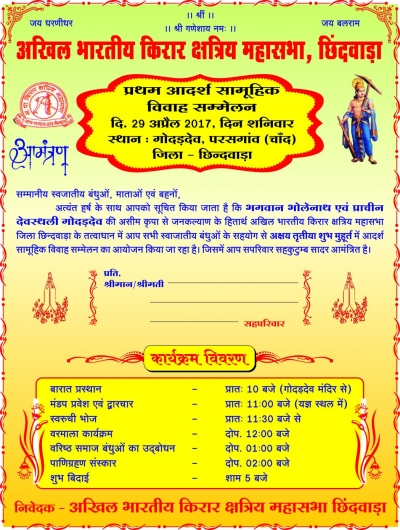 ।। श्रीं ।।
जय धरणीधर
।। श्री गणेशाय नमः ।।
जय बलराम
अखिल भारतीय किरार क्षत्रिय महासभा, छिंदवाड़ा
प्रथम आदर्श सामूहिक
विवाह सम्मेलन
दि. 29 अप्रैल 2017, दिन शनिवार
स्थान : गोदड़देव, परसगांव (चाँद)
जिला - छिन्दवाड़ा
आमंत्रण
सम्मानीय स्वजातीय बंधुओं, माताओं एवं बहनों,
अत्यंत हर्ष के साथ आपको सूचित किया जाता है कि भगवान भोलेनाथ एवं प्राचीन
देवस्थली गोदड़देव की असीम कृपा से जनकल्याण के हितार्थ अखिल भारतीय किरार क्षत्रिय महासभा
जिला छिन्दवाड़ा के तत्वाधान में आप सभी स्वाजातीय बंधुओं के सहयोग से अक्षय तृतीया शुभ मुहूर्त में आदर्श
सामूहिक विवाह सम्मेलन का आयोजन किया जा रहा है। जिसमें आप सपरिवार सहकुटुम्ब सादर आमंत्रित है।
प्रति,
श्रीमान/श्रीमती
सहपरिवार
कार्यक्रम विवरण
बारात प्रस्थान - प्रातः 10 बजे (गोदड़देव मंदिर से)
मंडप प्रवेश एवं द्वारचार - प्रातः 11:00 बजे (यज्ञ स्थल में)
स्वरुची भोज - प्रातः 11:30 से
वरमाला कार्यक्रम - दोप. 12:00 बजे
वरिष्ठ समाज बंधुओं का उद्बोधन - दोप. 01:00 बजे
पाणिग्रहण संस्कार - दोप. 02:00 बजे
शुभ बिदाई - शाम 5 बजे
निवेदक - अखिल भारतीय किरार क्षत्रिय महासभा छिंदवाड़ा